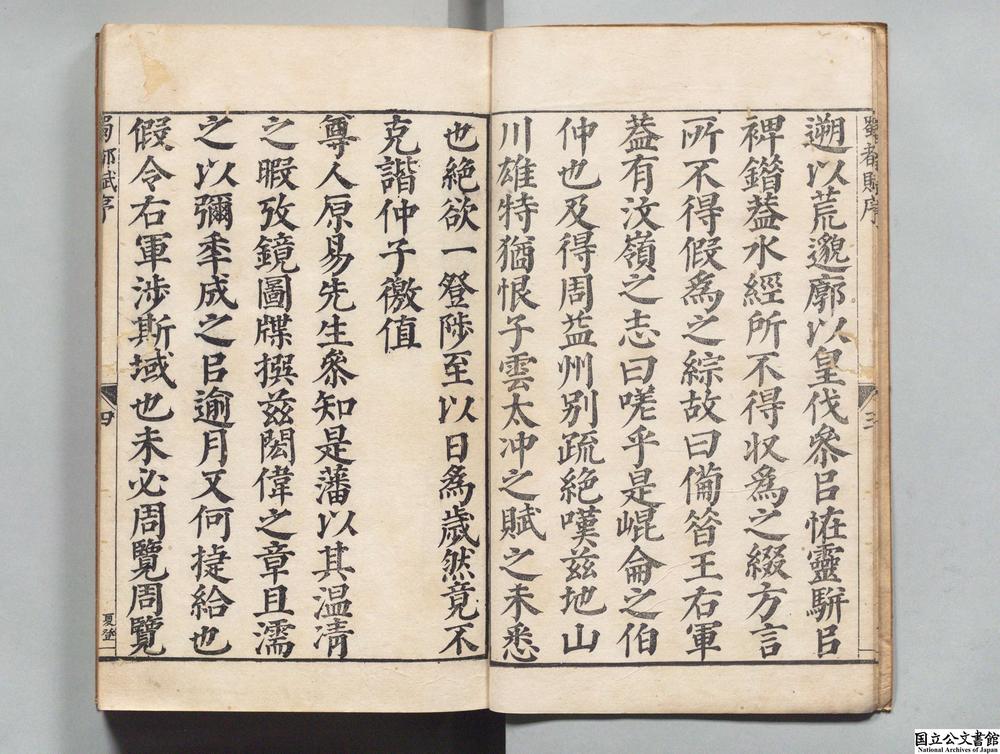 蜀都賦序
三
遡以荒邈廓以皇伐叅㠯恠靈駢㠯
裨鍇葢水經所不得収為之綴方言
所不得假為之綜故曰僃昔王右軍
葢有汶嶺之志曰嗟乎是崐侖之伯
仲也及得周益州别疏絶嘆茲地山
川雄特猶恨子雲太冲之賦之未悉
也絶欲一登陟至以日為歲然竟不
克諧仲子徼值
尊人原易先生叅知是藩以其温凊
之暇攷鏡圖牒撰茲閎偉之章且濡
之以彌秊成之㠯逾月又何揵給也
假令右軍涉斯域也未必周覽周覽
蜀都賦序
四
夏
國立公文書館
National Archives of Japan